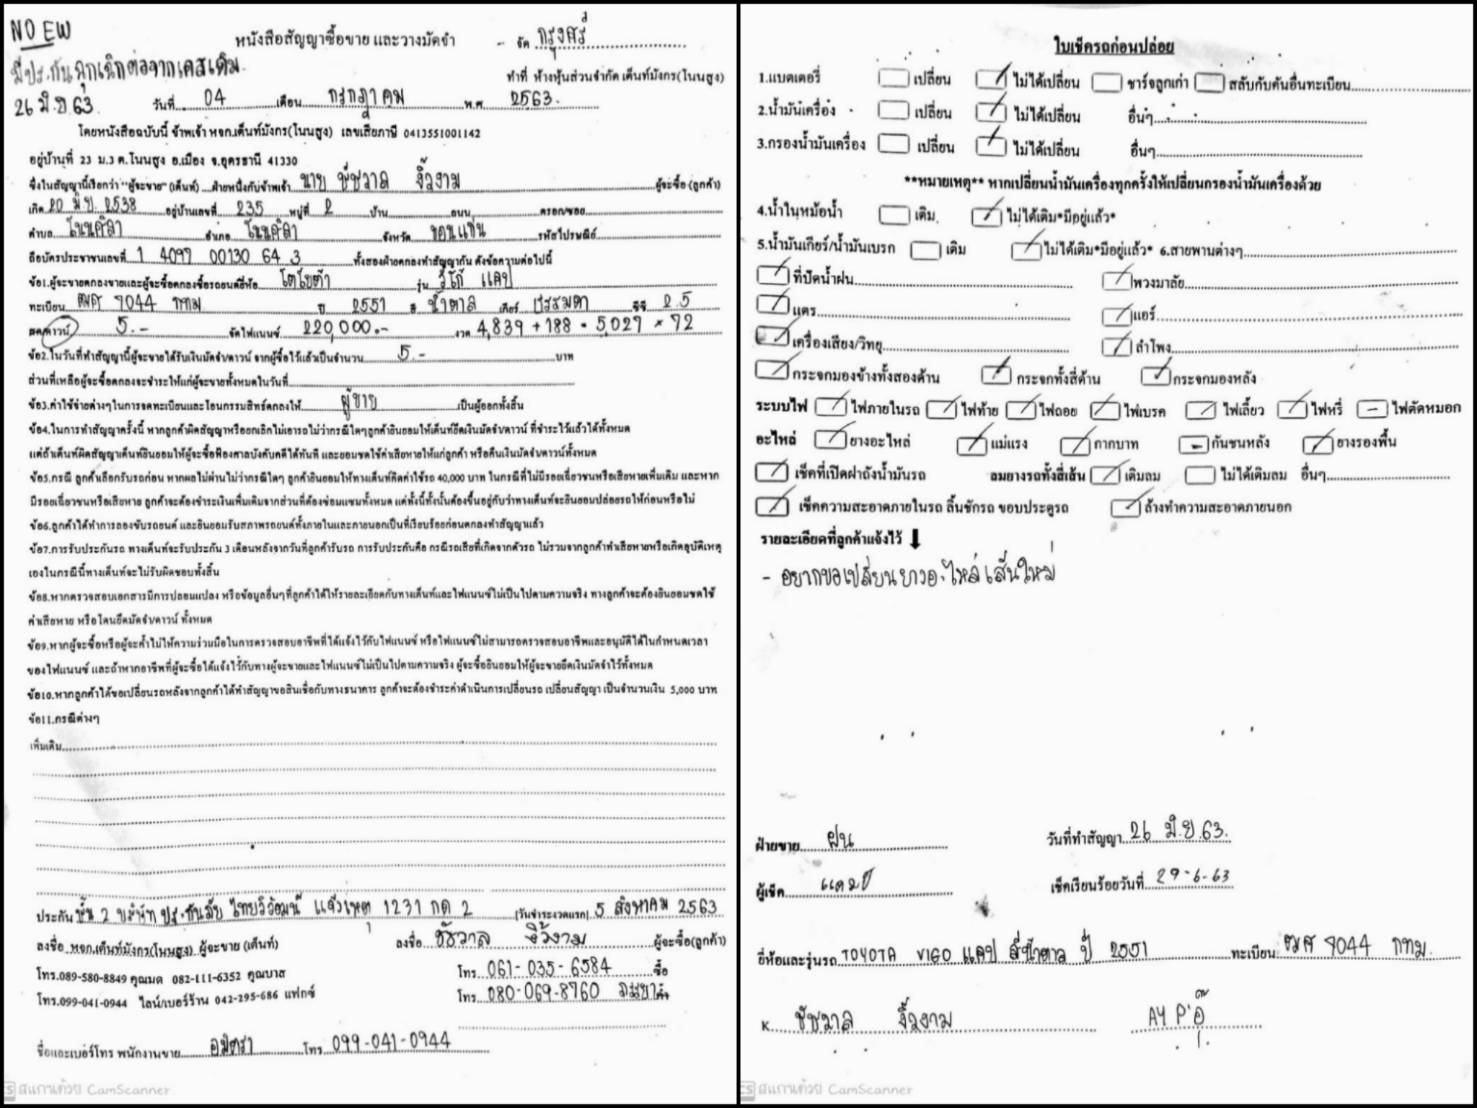 NO EW
หนังสือสัญญาซื้อขาย และวางมัดจำ
- จัด กรุงศรี
มีประกันฉุกเฉินต่อจากเคสเดิม
ทำที่ ห้างหุ้นส่วนจำกัด เต็นท์มังกร(โนนสูง)
26 มิ.ย 63
วันที่ 04 เดือน กรกฎาคม พ.ศ 2563.
โดยหนังสือฉบับนี้ ข้าพเจ้า หจก.เต็นท์มังกร(โนนสูง) เลขเสียภาษี 0413551001142
อยู่บ้านที่ 23 ม.3 ต.โนนสูง อ.เมือง จ.อุดรธานี 41330
ซึ่งในสัญญานี้เรียกว่า "ผู้จะขาย" (เต็นท์) ฝ่ายหนึ่งกับข้าพเจ้า นาย ชัชวาล งิ้วงาม ผู้จะซื้อ (ลูกค้า)
เกิด 20 มิ.ย. 2538 อยู่บ้านเลขที่ 235 หมู่ที่ 2 บ้าน ถนน ตรอก/ซอย
ตำบล โนนศิลา อำเภอ โนนศิลา จังหวัด ขอนแก่น รหัสไปรษณีย์
ถือบัตรประชาชนเลขที่ 1 4097 00130 64 3 ทั้งสองฝ่ายตกลงทำสัญญากัน ดังข้อความต่อไปนี้
ข้อ1.ผู้จะขายตกลงขายและผู้จะซื้อตกลงซื้อรถยนต์ยี่ห้อ โตโยต้า รุ่น วีโก้ แคป
ทะเบียน ฒศ 9044 กทม ปี 2551 สี น้ำตาล เกียร์ ธรรมดา ซีซี 2.5
สด/ดาวน์ 5.- จัดไฟแนนซ์ 220,000.- งวด 4,839 + 188 = 5,027 × 72
ข้อ2.ในวันที่ทำสัญญานี้ผู้จะขายได้รับเงินมัดจำ/ดาวน์ จากผู้ซื้อไว้แล้วเป็นจำนวน 5.- บาท
ส่วนที่เหลือผู้จะซื้อตกลงจะชำระให้แก่ผู้จะขายทั้งหมดในวันที่
ข้อ3.ค่าใช้จ่ายต่างๆในการจดทะเบียนและโอนกรรมสิทธ์ตกลงให้ ผู้ขาย เป็นผู้ออกทั้งสิ้น
ข้อ4.ในการทำสัญญาครั้งนี้ หากลูกค้าผิดสัญญาหรือยกเลิกไม่เอารถ ไม่ว่ากรณีใดๆลูกค้ายินยอมให้เต็นท์ยึดเงินมัดจำ/ดาวน์ ที่ชำระไว้แล้วได้ทั้งหมด
แต่ถ้าเต็นท์ผิดสัญญาเต็นท์ยินยอมให้ผู้จะซื้อฟ้องศาลบังคับคดีได้ทันที และยอมชดใช้ค่าเสียหายให้แก่ลูกค้า หรือคืนเงินมัดจำ/ดาวน์ทั้งหมด
ข้อ5.กรณี ลูกค้าเลือกรับรถก่อน หากผลไม่ผ่านไม่ว่ากรณีใดๆ ลูกค้ายินยอมให้ทางเต็นท์คิดค่าใช้รถ 40,000 บาท ในกรณีที่ไม่มีรอยเฉี่ยวชนหรือเสียหายเพิ่มเติม และหาก
มีรอยเฉี่ยวชนหรือเสียหาย ลูกค้าจะต้องชำระเงินเพิ่มเติมจากส่วนที่ต้องซ่อมแซมทั้งหมด แต่ทั้งนี้ทั้งนั้นต้องขึ้นอยู่กับว่าทางเต็นท์จะยินยอมปล่อยรถให้ก่อนหรือไม่
ข้อ6.ลูกค้าได้ทำการลองขับรถยนต์ และยินยอมรับสภาพรถยนต์ทั้งภายในและภายนอกเป็นที่เรียบร้อยก่อนตกลงทำสัญญาแล้ว
ข้อ7.การรับประกันรถ ทางเต็นท์จะรับประกัน 3 เดือนหลังจากวันที่ลูกค้ารับรถ การรับประกันคือ กรณีรถเสียที่เกิดจากตัวรถ ไม่รวมจากลูกค้าทำเสียหายหรือเกิดอุบัติเหตุ
เองในกรณีนี้ทางเต็นท์จะไม่รับผิดชอบทั้งสิ้น
ข้อ8.หากตรวจสอบเอกสารมีการปลอมแปลง หรือข้อมูลอื่นๆที่ลูกค้าได้ให้รายละเอียดกับทางเต็นท์และไฟแนนซ์ไม่เป็นไปตามความจริง ทางลูกค้าจะต้องยินยอมชดใช้
ค่าเสียหาย หรือโดนยึดมัดจำ/ดาวน์ ทั้งหมด
ข้อ9.หากผู้จะซื้อหรือผู้จะค้ำไม่ให้ความร่วมมือในการตรวจสอบอาชีพที่ได้แจ้งไว้กับไฟแนนซ์ หรือไฟแนนซ์ไม่สามารถตรวจสอบอาชีพและอนุมัติได้ในกำหนดเวลา
ของไฟแนนซ์ และถ้าหากอาชีพที่ผู้จะซื้อได้แจ้งไว้กับทางผู้จะขายและไฟแนนซ์ไม่เป็นไปตามความจริง ผู้จะซื้อยินยอมให้ผู้จะขายยึดเงินมัดจำไว้ทั้งหมด
ข้อ10.หากลูกค้าได้ขอเปลี่ยนรถหลังจากลูกค้าได้ทำสัญญาขอสินเชื่อกับทางธนาคาร ลูกค้าจะต้องชำระค่าดำเนินการเปลี่ยนรถ เปลี่ยนสัญญา เป็นจำนวนเงิน 5,000 บาท
ข้อ11.กรณีต่างๆ
เพิ่มเติม
ประกัน ชั้น 2 บริษัท ประกันภัย ไทยวิวัฒน์ แจ้งเหตุ 1231 กด 2 (วันชำระงวดแรก) 5 สิงหาคม 2563
ลงชื่อ หจก.เต็นท์มังกร(โนนสูง) ผู้จะขาย (เต็นท์) ลงชื่อ ชัชวาล งิ้วงาม ผู้จะซื้อ(ลูกค้า)
โทร.089-580-8849 คุณมด 082-111-6352 คุณบาส โทร. 061-035-6584 ซื้อ
โทร.099-041-0944 ไลน์/เบอร์ร้าน 042-295-686 แฟกซ์ โทร. 080-069-8760 ภรรยา
ชื่อและเบอร์โทร พนักงานขาย โทร 099-041-0944
สแกนด้วย CamScanner
ใบเช็ครถก่อนปล่อย
1.แบตเตอรี่ เปลี่ยน ไม่ได้เปลี่ยน ชาร์จลูกเก่า สลับกับคันอื่นทะเบียน
2.น้ำมันเครื่อง เปลี่ยน ไม่ได้เปลี่ยน อื่นๆ
3.กรองน้ำมันเครื่อง เปลี่ยน ไม่ได้เปลี่ยน อื่นๆ
**หมายเหตุ** หากเปลี่ยนน้ำมันเครื่องทุกครั้งให้เปลี่ยนกรองน้ำมันเครื่องด้วย
4.น้ำในหม้อน้ำ เติม ไม่ได้เติม*มีอยู่แล้ว*
5.น้ำมันเกียร์/น้ำมันเบรก เติม ไม่ได้เติม*มีอยู่แล้ว* 6.สายพานต่างๆ
ที่ปัดน้ำฝน พวงมาลัย
แตร แอร์
เครื่องเสียง/วิทยุ ลำโพง
กระจกมองข้างทั้งสองด้าน กระจกทั้งสี่ด้าน กระจกมองหลัง
ระบบไฟ ไฟภายในรถ ไฟท้าย ไฟถอย ไฟเบรค ไฟเลี้ยว ไฟหรี่ ไฟตัดหมอก
อะไหล่ ยางอะไหล่ แม่แรง กากบาท กันชนหลัง ยางรองพื้น
เช็คที่เปิดฝาถังน้ำมันรถ ลมยางรถทั้งสี่เส้น เติมลม ไม่ได้เติมลม อื่นๆ
เช็คความสะอาดภายในรถ ลิ้นชักรถ ขอบประตูรถ ล้างทำความสะอาดภายนอก
รายละเอียดที่ลูกค้าแจ้งไว้
- อยากขอเปลี่ยนยางอะไหล่เส้นใหม่
ฝ่ายขาย ฝน วันที่ทำสัญญา 26 มิ.ย.63.
ผู้เช็ค แคมป์ เช็คเรียบร้อยวันที่ 29-6-63
ยี่ห้อและรุ่นรถ TOYOTA VIGO แคป สีน้ำตาล ปี 2551 ทะเบียน ฒศ 9044 กทม.
K. ชัชวาล งิ้วงาม AY P'อี๊
สแกนด้วย CamScanner